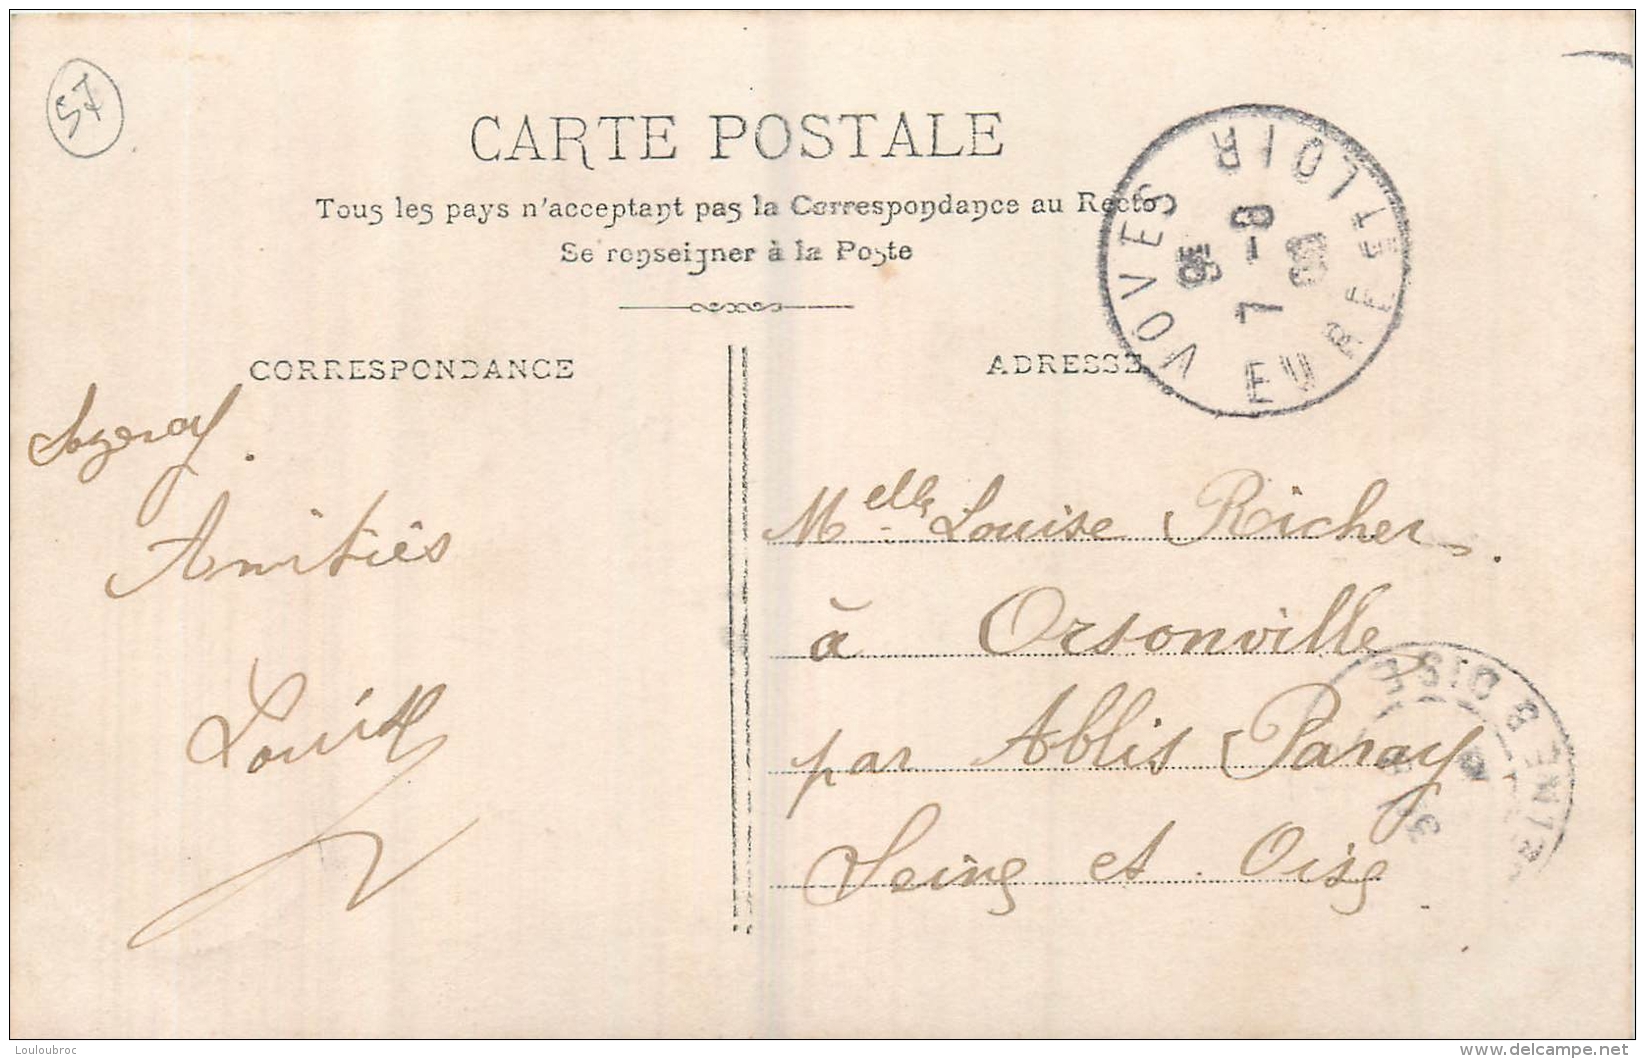 57
CARTE POSTALE
Tous les pays n'acceptant pas la Correspondance au Recto
Se renseigner à la Poste
VOVES
EURE ET LOIR
7 - 8
CORRESPONDANCE
ADRESSE
Amitiés
Melle Louise Richer.
à Orsonville
par Ablis Paray
Seine et Oise
Louloubroc
www.delcampe.net